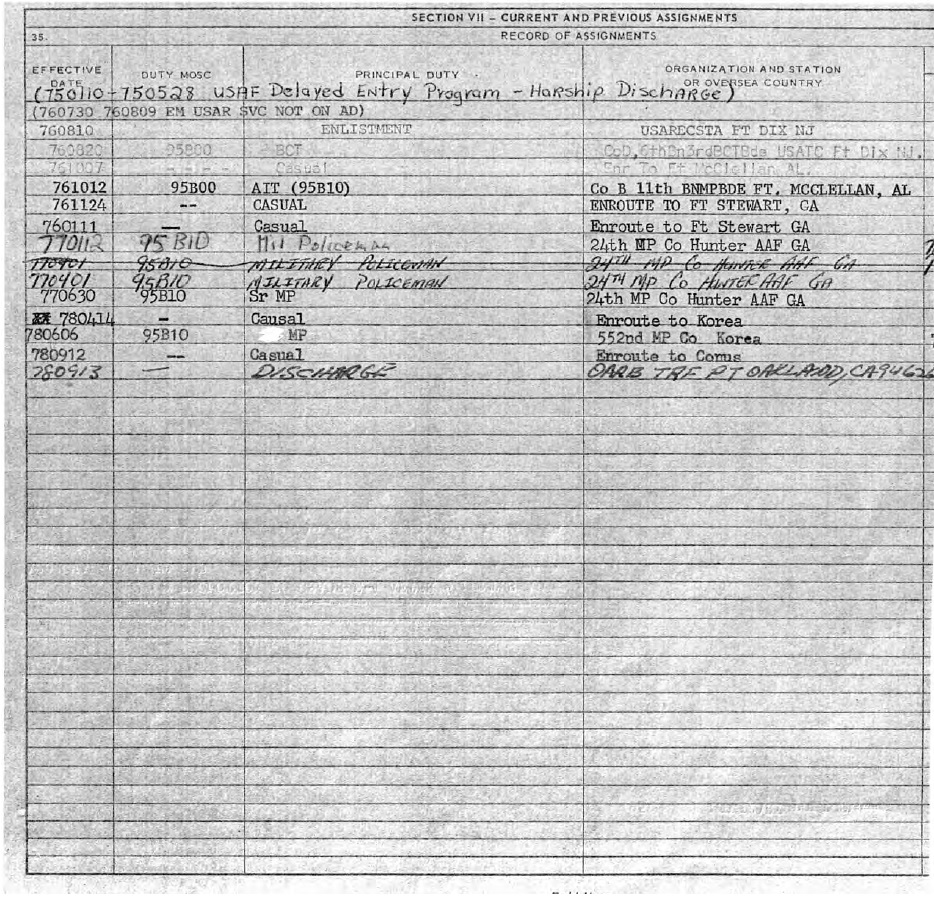 SECTION VII – CURRENT AND PREVIOUS ASSIGNMENTS
35. RECORD OF ASSIGNMENTS
EFFECTIVE DATE DUTY MOSC PRINCIPAL DUTY ORGANIZATION AND STATION OR OVERSEA COUNTRY
(750110-750528 USAF Delayed Entry Program - Harship Discharge)
(760730 760809 EM USAR SVC NOT ON AD)
760810 ENLISTMENT USARECSTA FT DIX NJ
760820 95B00 BCT CoD,6thBn3rdBCTBde USATC Ft Dix NJ.
761007 Casual Enr To Ft McClellan AL.
761012 95B00 AIT (95B10) Co B 11th BNMPBDE FT. MCCLELLAN, AL
761124 -- CASUAL ENROUTE TO FT STEWART, GA
760111 — Casual Enroute to Ft Stewart GA
770112 95B10 Mil Policeman 24th MP Co Hunter AAF GA
770401 95B10 MILITARY POLICEMAN 24TH MP Co HUNTER AAF GA
770401 95B10 MILITARY POLICEMAN 24TH MP Co HUNTER AAF GA
770630 95B10 Sr MP 24th MP Co Hunter AAF GA
780414 - Causal Enroute to Korea
780606 95B10 MP 552nd MP Co Korea
780912 -- Casual Enroute to Conus
780913 — DISCHARGE OARB TRF PT OAKLAND, CA 94626